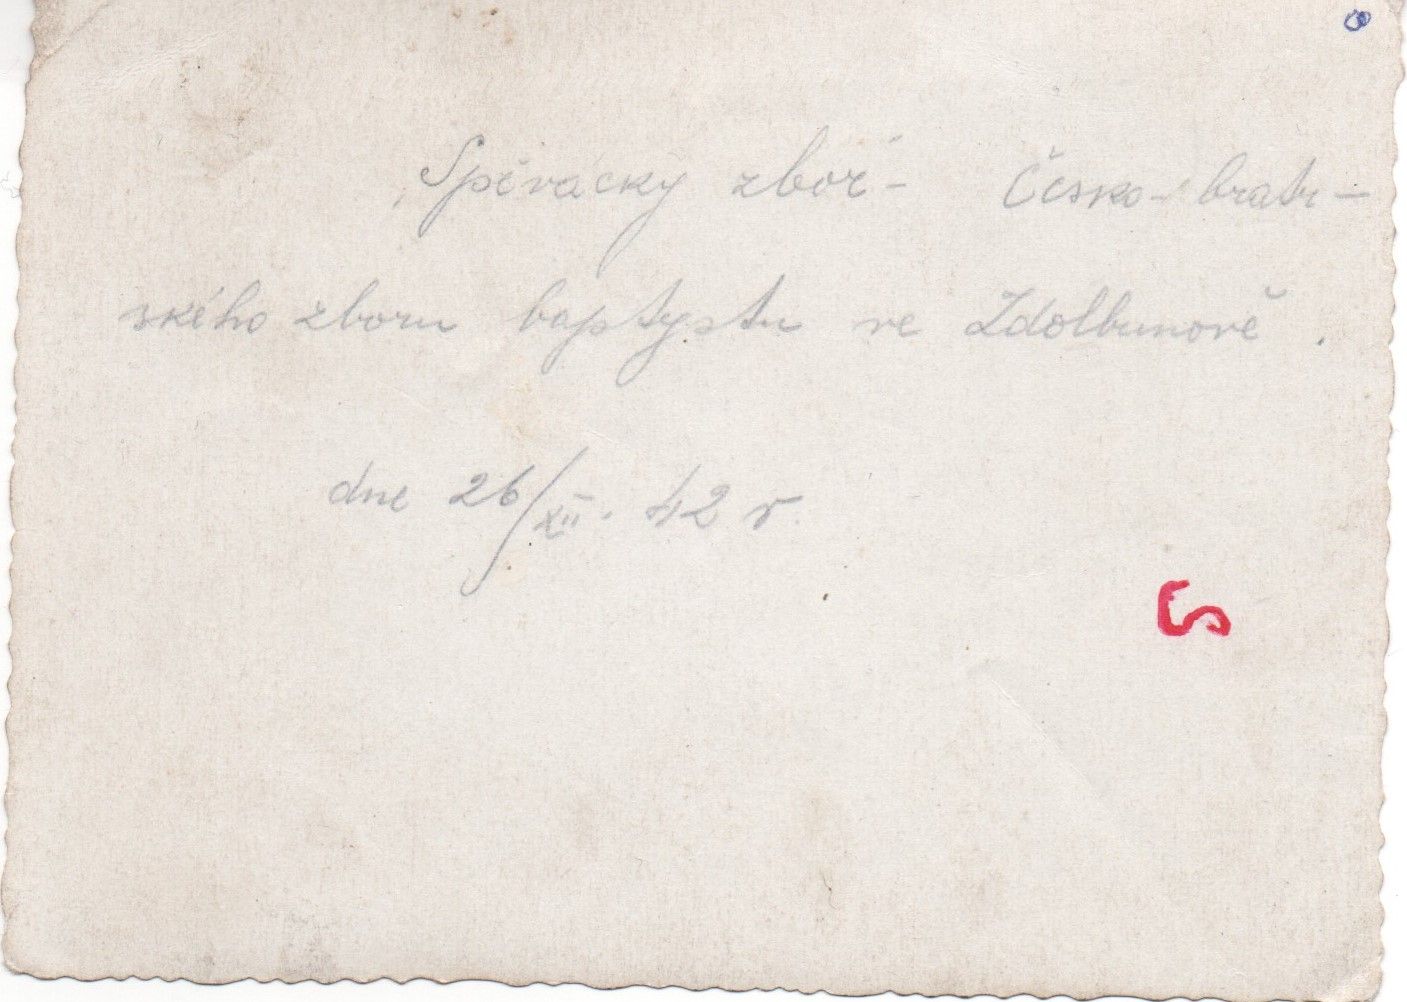 Spěvácký zbor - Česko-bratr-
ského zboru baptystu ve Zdolbunově.
dne 26/XII. 42 r.